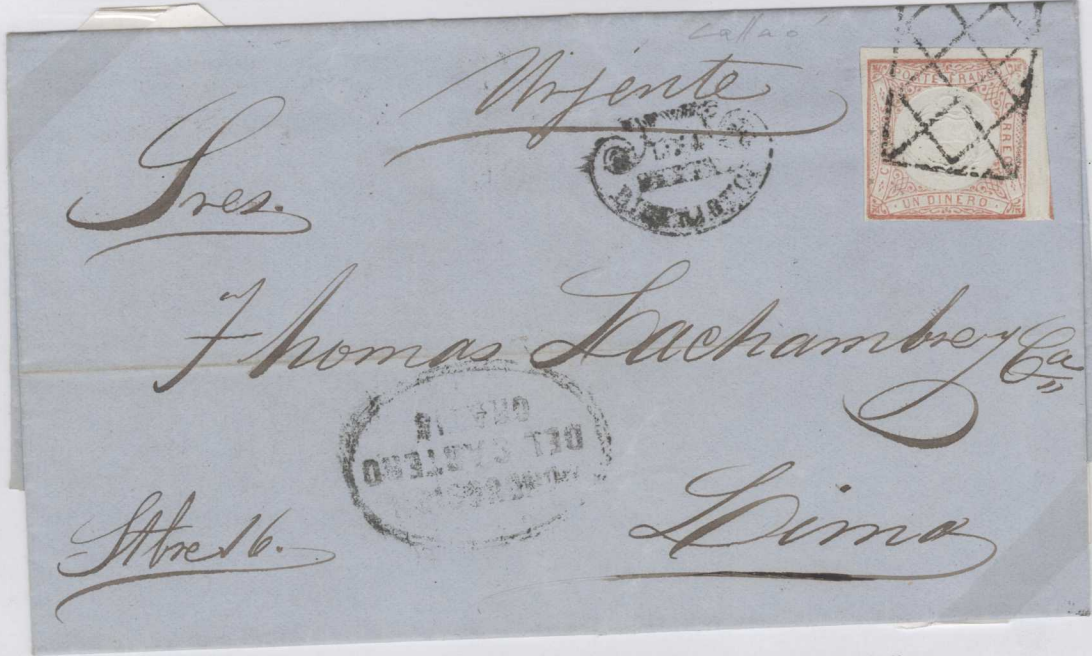 Callao
Urjente
PORTE FRANCO
CORREOS
UN DINERO
Sres.
Thomas Lachambre y Ca
DEL CARTERO
GRATIS
Stbre 16.
Lima